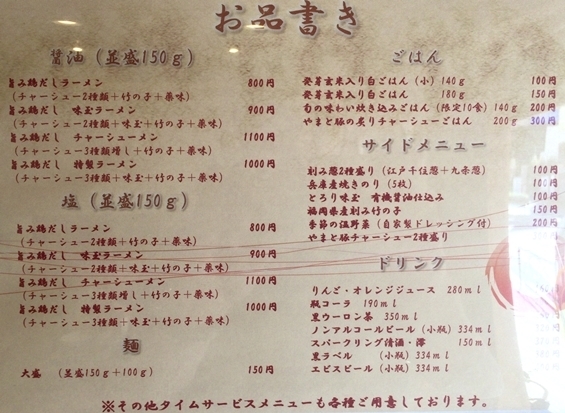 お品書き
醤油（並盛150ｇ）
旨み鶏だしラーメン 800円
（チャーシュー2種類＋竹の子＋薬味）
旨み鶏だし 味玉ラーメン 900円
（チャーシュー2種類＋味玉＋竹の子＋薬味）
旨み鶏だし チャーシューメン 1100円
（チャーシュー3種類増し＋竹の子＋薬味）
旨み鶏だし 特製ラーメン 1000円
（チャーシュー3種類＋味玉＋竹の子＋薬味）
塩（並盛150ｇ）
旨み鶏だしラーメン 800円
（チャーシュー2種類＋竹の子＋薬味）
旨み鶏だし 味玉ラーメン 900円
（チャーシュー2種類＋味玉＋竹の子＋薬味）
旨み鶏だし チャーシューメン 1100円
（チャーシュー3種類増し＋竹の子＋薬味）
旨み鶏だし 特製ラーメン 1000円
（チャーシュー3種類＋味玉＋竹の子＋薬味）
麺
大盛 （並盛150ｇ＋100ｇ） 150円
ごはん
発芽玄米入り白ごはん（小）140ｇ 100円
発芽玄米入り白ごはん 180ｇ 150円
旬の味わい炊き込みごはん（限定10食）140ｇ 200円
やまと豚の炙りチャーシューごはん 200ｇ 300円
サイドメニュー
刻み葱2種盛り（江戸千住葱＋九条葱） 100円
兵庫産焼きのり（5枚） 100円
とろり味玉 有機醤油仕込み 100円
福岡県産刻み竹の子 150円
季節の温野菜（自家製ドレッシング付） 200円
やまと豚チャーシュー2種盛り
ドリンク
りんご・オレンジジュース 280ｍｌ
瓶コーラ 190ｍｌ
黒ウーロン茶 350ｍｌ
ノンアルコールビール（小瓶）334ｍｌ
スパークリング清酒・澪 150ｍｌ
黒ラベル （小瓶）334ｍｌ
エビスビール（小瓶）334ｍｌ
※その他タイムサービスメニューも各種ご用意しております。